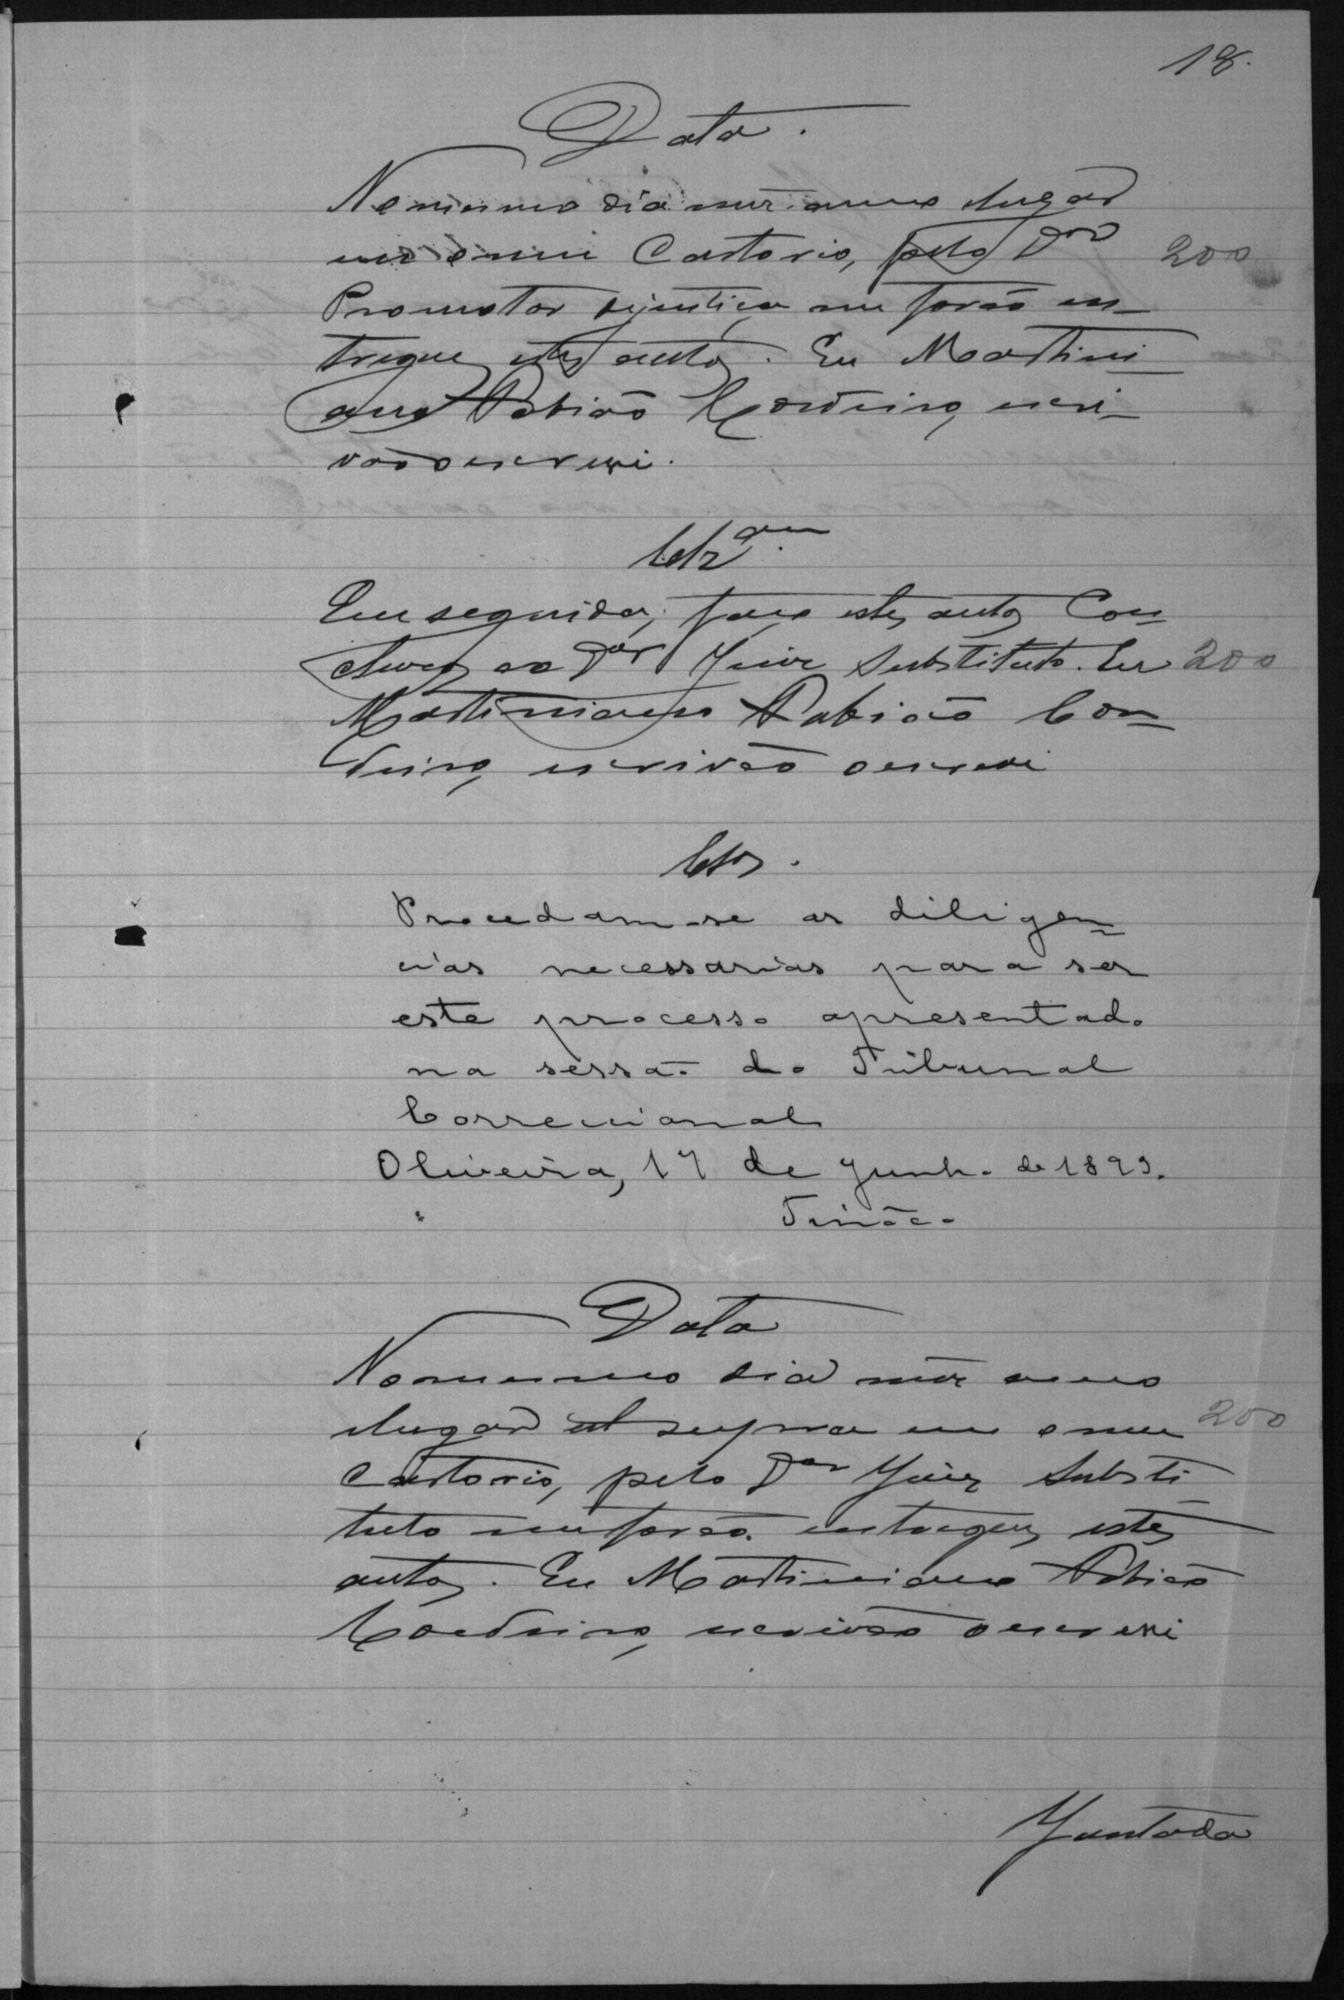 18.
Data.
No mesmo dia mez anno e lugar
em o meu Cartorio, pelo Dor 200
Promotor dijustiça me forão en-
tregues estes autos. Eu Martini-
ano Fabião Cordeiro, escri-
vão o escrevi.
Clzam.
Em seguida, faço estes autos Con-
clusos ao Dor Juiz Substituto. Eu 200
Martiniano Fabião Cor-
deiro, escrivão o escrevi
Clos.
Procedam-se as diligen-
cias necessarias para ser
este processo apresentado
na sessão do Tribunal
Correccional
Oliveira, 17 de Junho de 1893.
Tinôco
Data
No mesmo dia mez anno
e lugar ut supra em o meu 200
Cartorio, pelo Dor Juiz Substi-
tuto me forão entregues estes
autos. Eu Martiniano Fabião
Cordeiro, escrivão o escrevi
Juntada